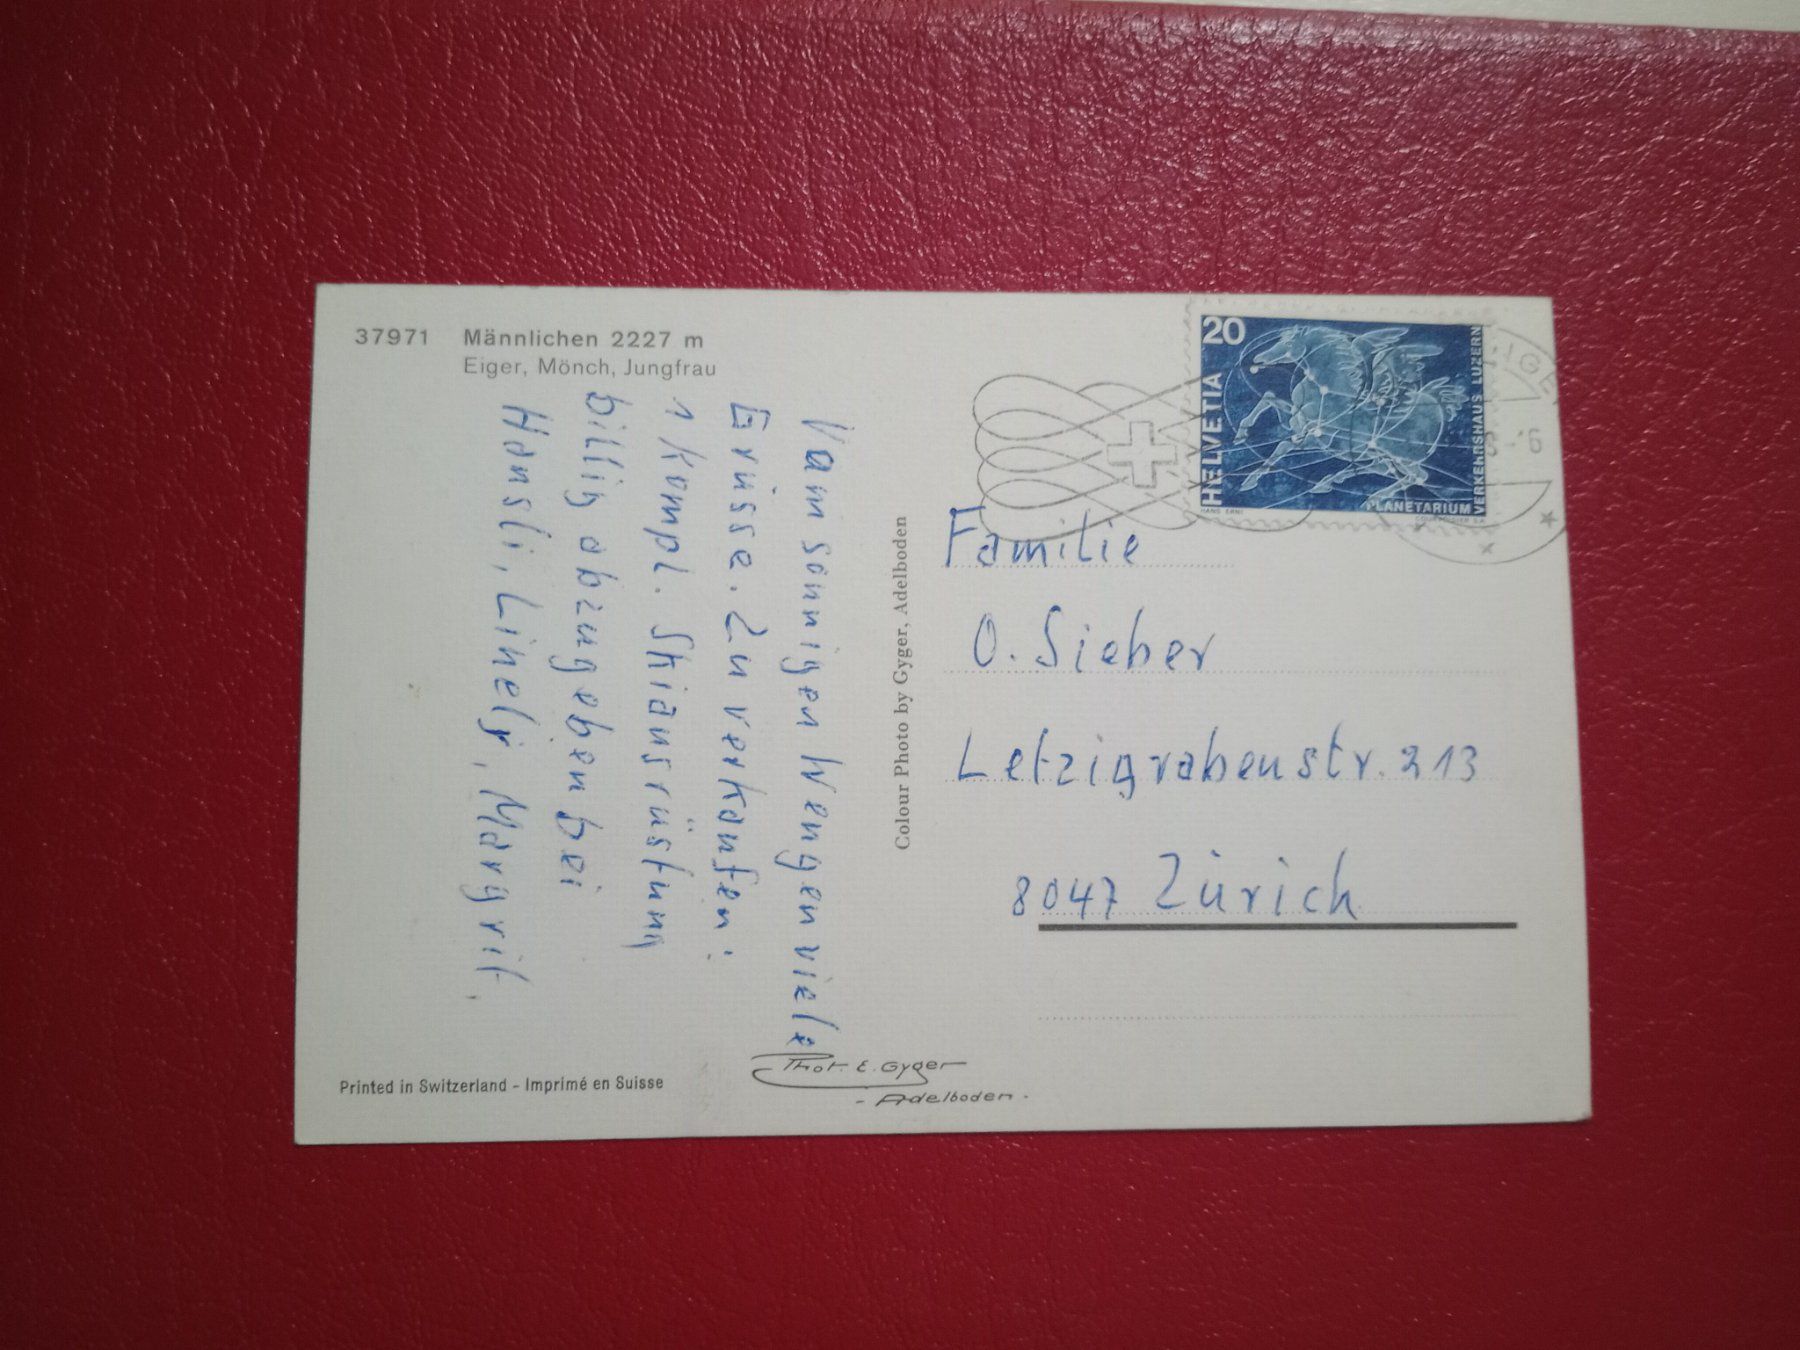 37971 Männlichen 2227 m
Eiger, Mönch, Jungfrau
Vam sonnigen Wengen viele
Grüsse. Zu verkaufen:
1 kompl. Skiausrüstung
billig abzugeben bei
Hansli, Linely, Margrit.
Colour Photo by Gyger, Adelboden
Printed in Switzerland - Imprimé en Suisse
Phot. E. Gyger
- Adelboden -
20
HELVETIA
PLANETARIUM
VERKEHRSHAUS LUZERN
HANS ERNI
COURVOISIER S.A.
Familie
O. Sieber
Letzigrabenstr. 213
8047 Zürich